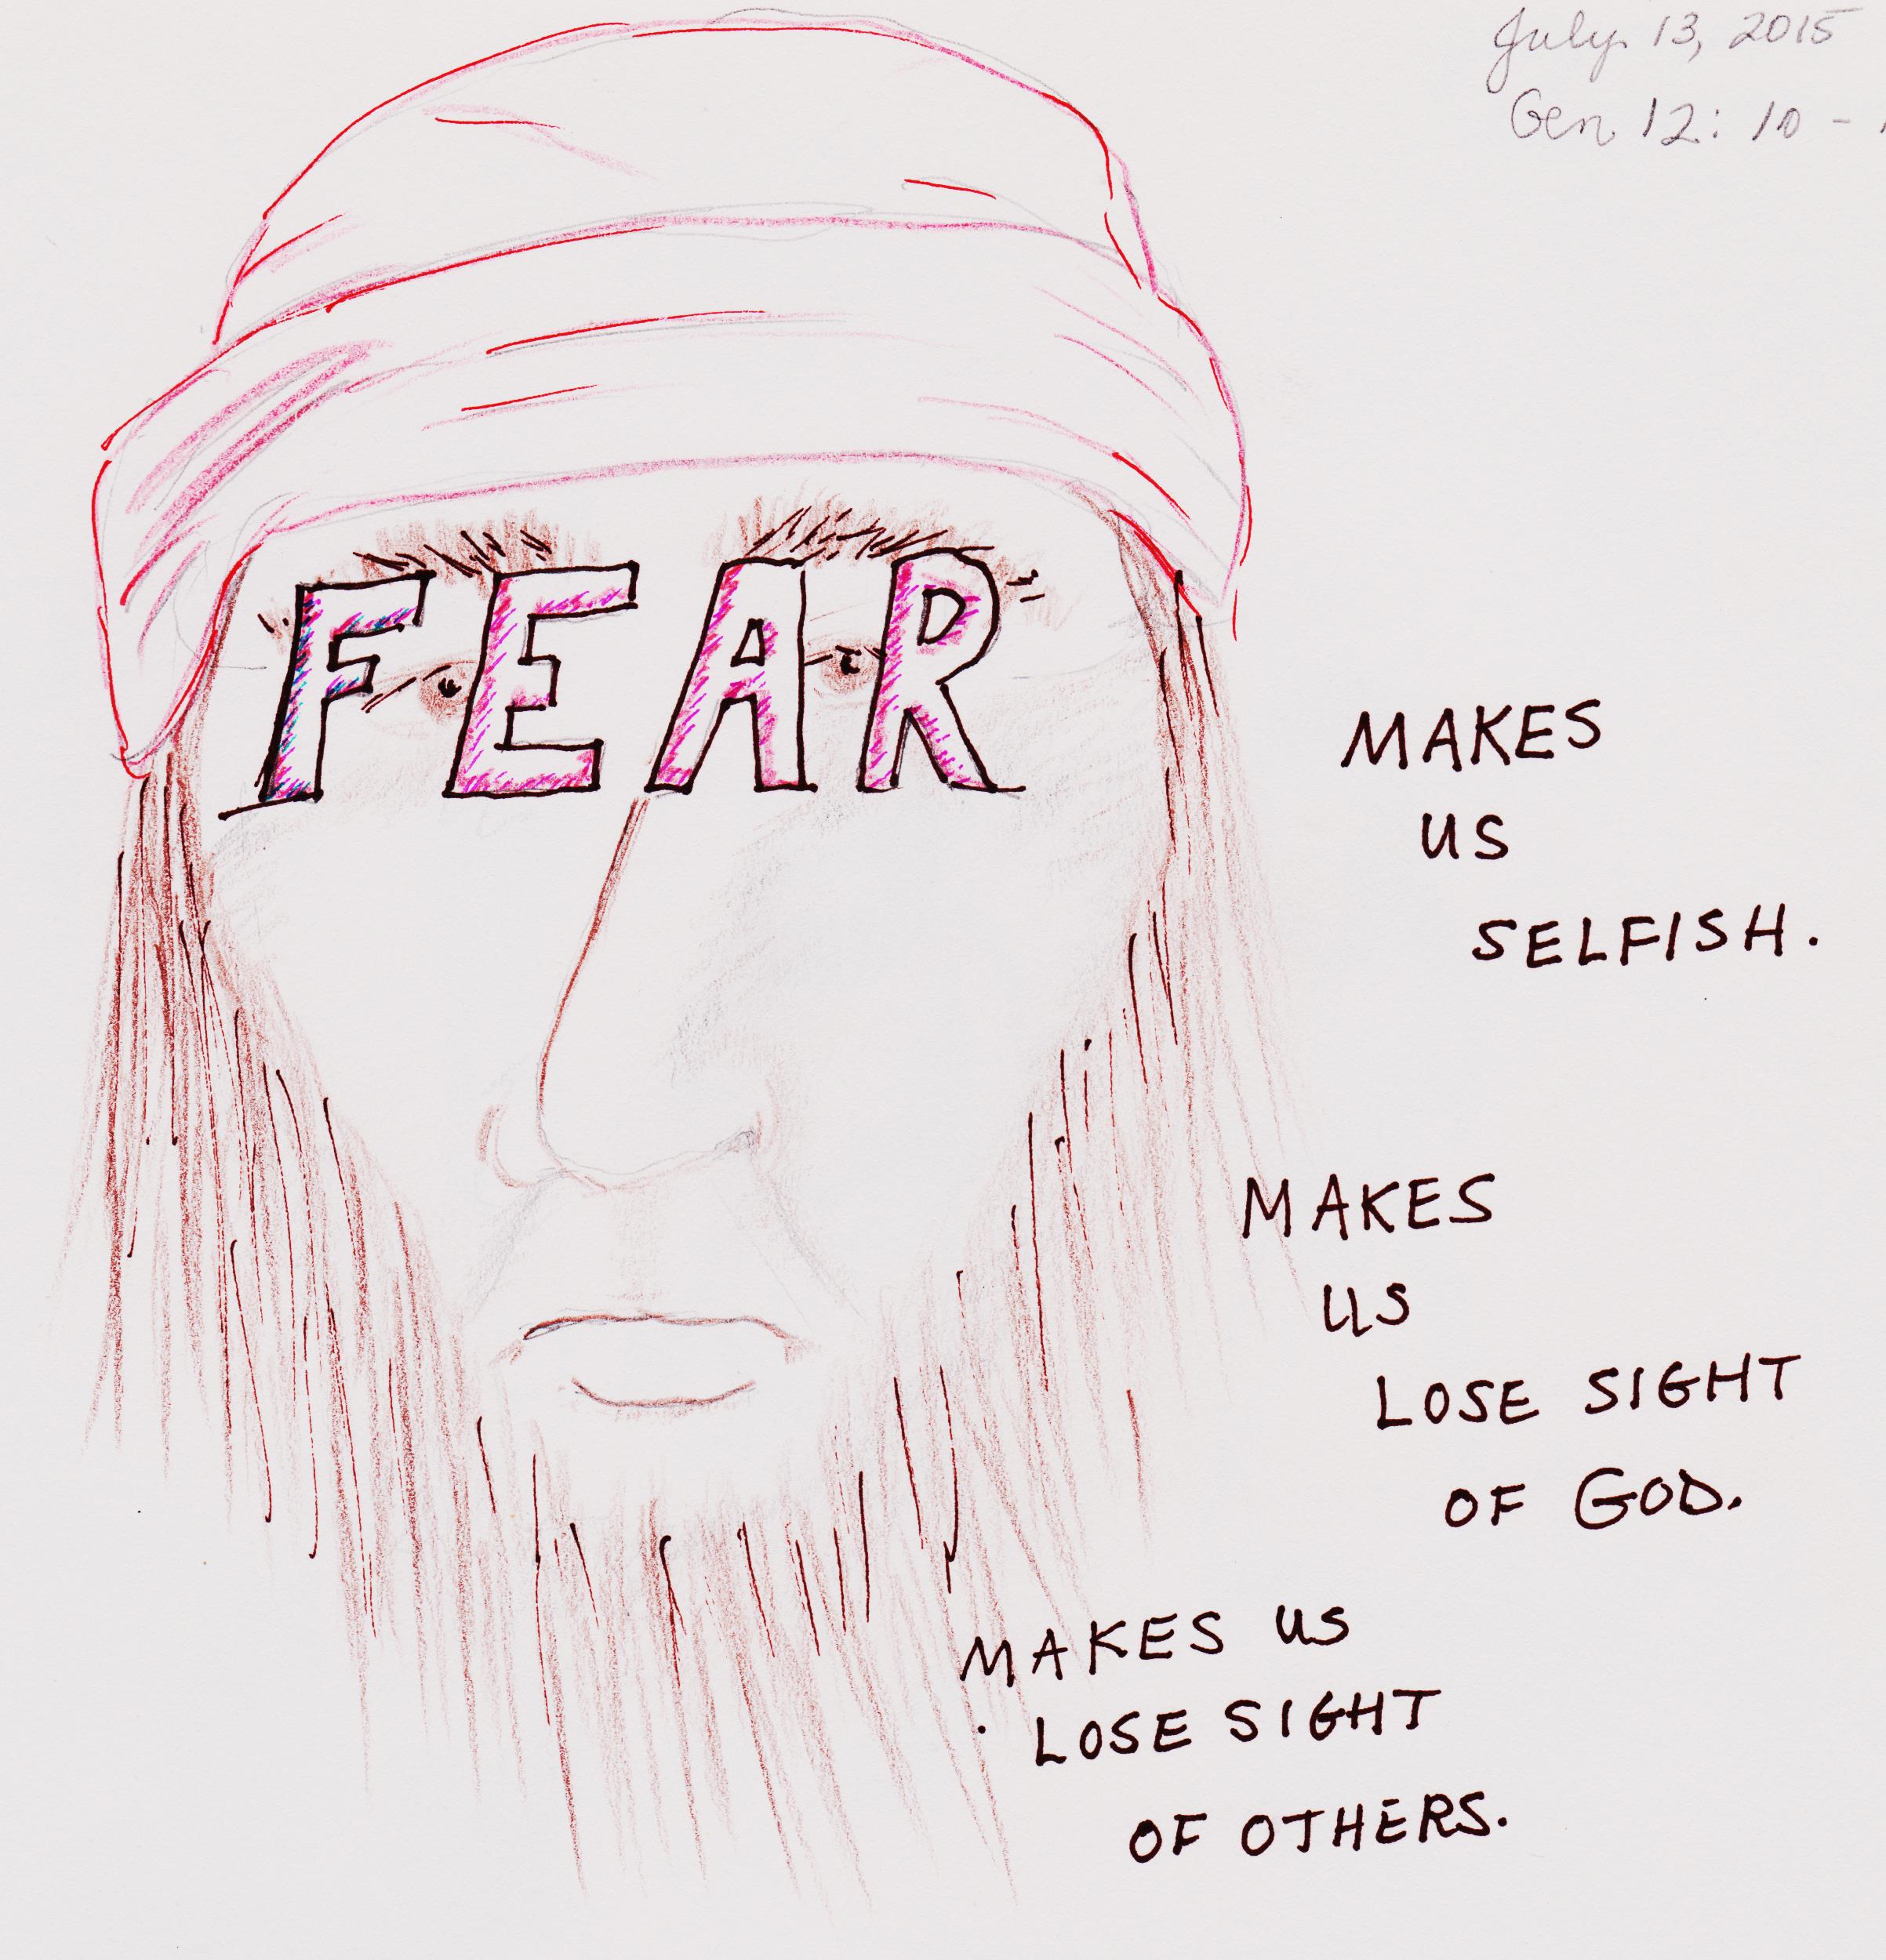 July 13, 2015
Gen 12: 10 -
FEAR
MAKES
US
SELFISH.
MAKES
US
LOSE SIGHT
OF GOD.
MAKES US
LOSE SIGHT
OF OTHERS.